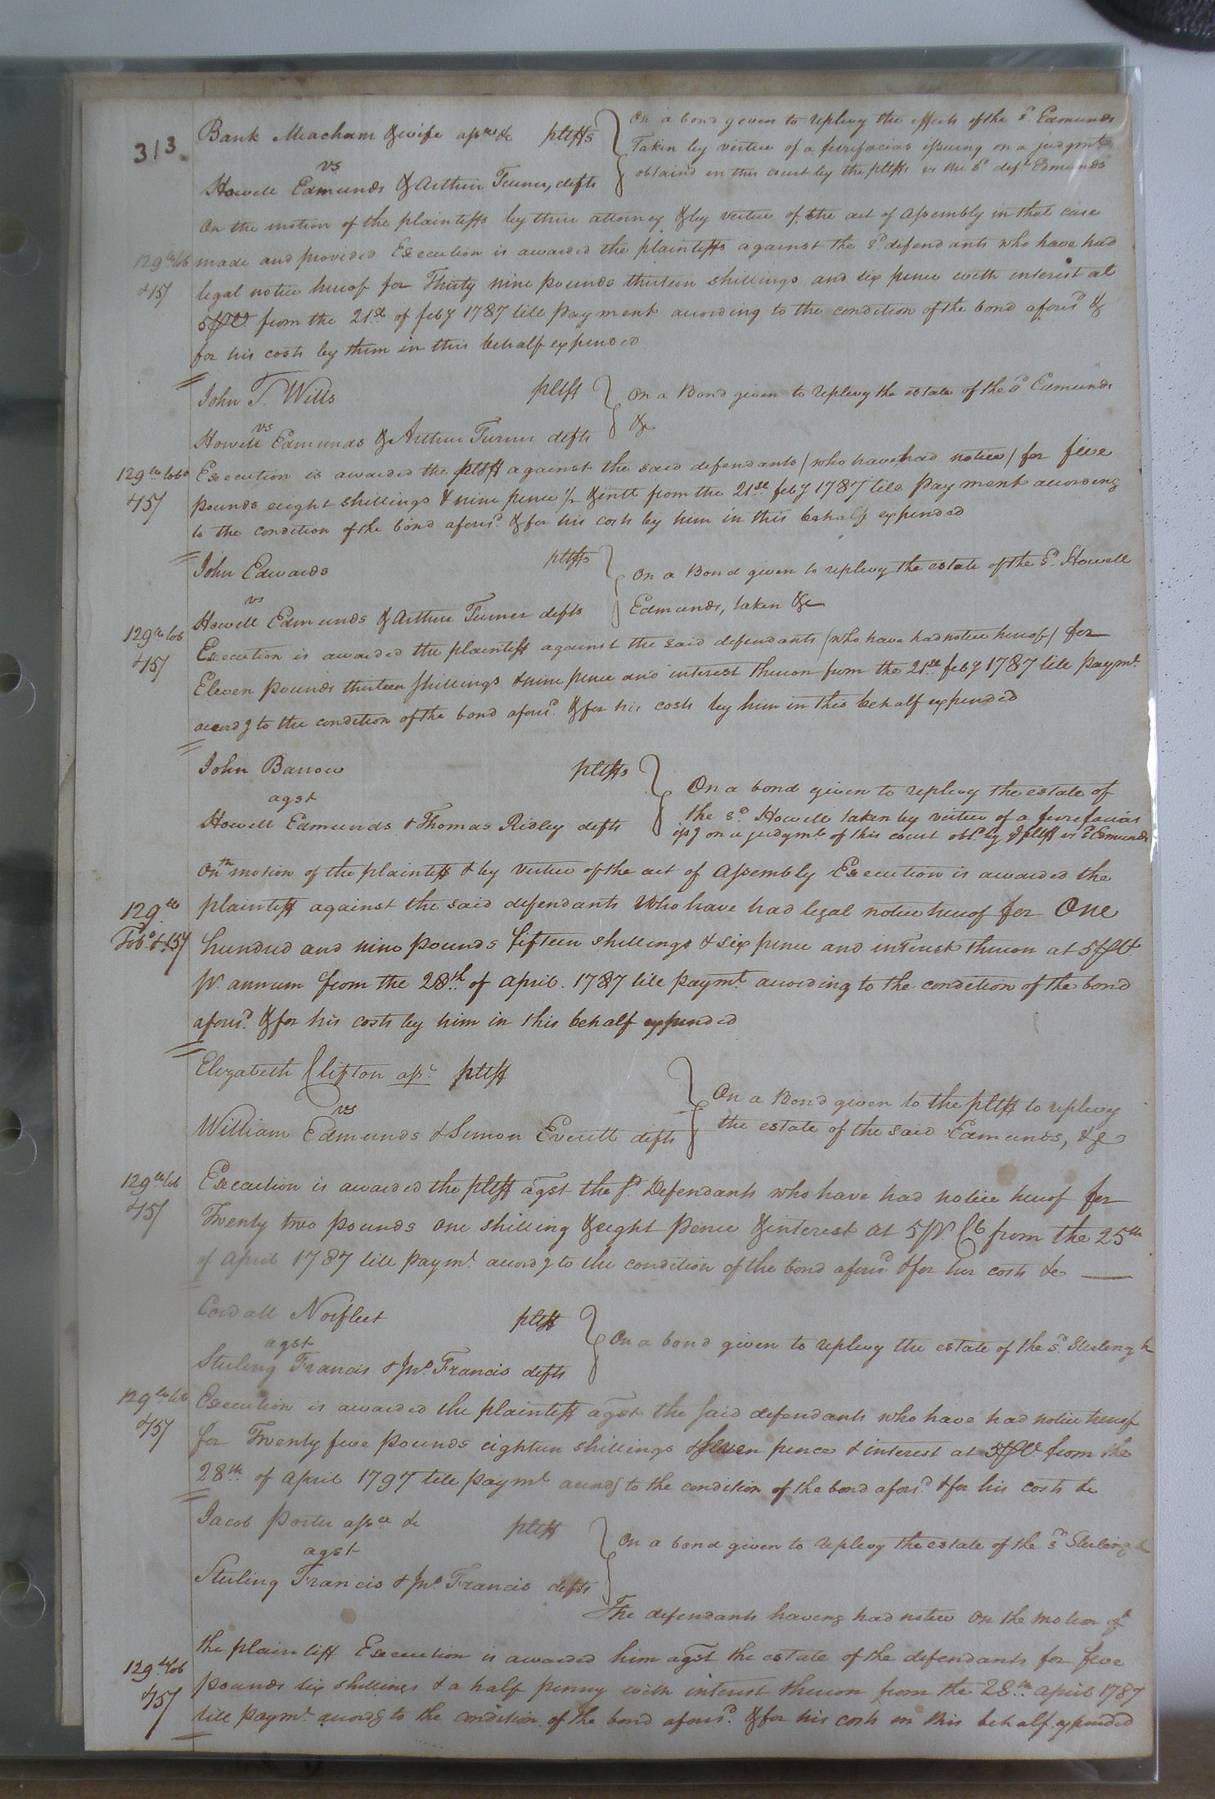 313.
Bank Meacham & wife ass.ee &c pltffs
On a bond given to replevy the effects of the s.d Edmunds
Taken by virtue of a fierifacias issuing on a judgmt
vs
obtaind in this court by the pltffs vs the s.d deft Edmunds
Howell Edmunds & Arthur Turner, defts
On the motion of the plaintiffs by their attorney & by virtue of the act of Assembly in that case
made and provided Execution is awarded the plaintiffs against the s.d defendants who have had
129 lb tob
&15/
legal notice hereof for Thirty nine pounds thirteen shillings and six pence with interest at
5 ⅌ Ct from the 21st of feby 1787 till payment according to the condition of the bond afores.d &
for his costs by them in this behalf expended
John T. Wills pltff
On a Bond given to replevy the estate of the s.d Edmunds
vs
&c
Howell Edmunds & Arthur Turner defts
129 lb tobo
&15/
Execution is awarded the pltff against the said defendants (who have had notice) for five
pounds eight shillings & nine pence & intt from the 21st feby 1787 till payment according
to the condition of the bond afores.d & for his costs by him in this behalf expended
John Edwards pltffs
On a Bond given to replevy the estate of the s.d Howell
vs
Edmunds, taken &c
Howell Edmunds & Arthur Turner defts
129 lb tob
&15/
Execution is awarded the plaintiff against the said defendants (who have had notice hereof) for
Eleven pounds thirteen shillings & nine pence and interest thereon from the 21st feby 1787 till paymt.
accordg to the condition of the bond afores.d & for his costs by him in this behalf expended
John Barrow pltffs
On a bond given to replevy the estate of
agst
the s.d Howell taken by virtue of a fierefacias
Howell Edmunds & Thomas Ridley defts
issg on a judgmt of this court obt.d by pltff vs s.d Edmunds
On motion of the plaintiff & by virtue of the act of Assembly Execution is awarded the
129 lb
Tobo & 15/
plaintiff against the said defendants who have had legal notice hereof for One
hundred and nine pounds fifteen shillings & six pence and interest thereon at 5 ⅌ Ct
⅌ annum from the 28th of april. 1787 till paymt according to the condition of the bond
afores.d & for his costs by him in this behalf expended
Elizabeth Clifton ass.e pltff
On a Bond given to the pltff to replevy
vs
the estate of the said Edmunds, &c
William Edmunds & Simon Everitt defts
129 lb tob
&15/
Execution is awarded the pltff agst the s.d Defendants who have had notice hereof for
Twenty two pounds one shilling & eight pence & interest at 5 ⅌ Ct from the 25th
of april 1787 till paymt. accordg to the condition of the bond afores.d & for her costs &c
Cordall Norfleet pltff
agst
On a bond given to replevy the estate of the s.d Sterling &
Sterling Francis & Jno. Francis defts
129 lb tob
&15/
Execution is awarded the plaintiff agst the said defendants who have had notice hereof
for Twenty five pounds eighteen shillings & seven pence & interest at 5 ⅌ Ct from the
28th of April 1797 till paymt accordg to the condition of the bond afores.d & for his costs &c
Jacob Porter ass.ee &c pltff
agst
On a bond given to replevy the estate of the s.d Sterling &
Sterling Francis & Jno. Francis defts
The defendants having had notice On the motion of
the plaintiff Execution is awarded him agst the estate of the defendants for five
129 lb tob
&15/
pounds six shillings & a half penny with interest thereon from the 28th april 1787
till paymt. accordg to the condition of the bond afores.d & for his costs in this behalf expended